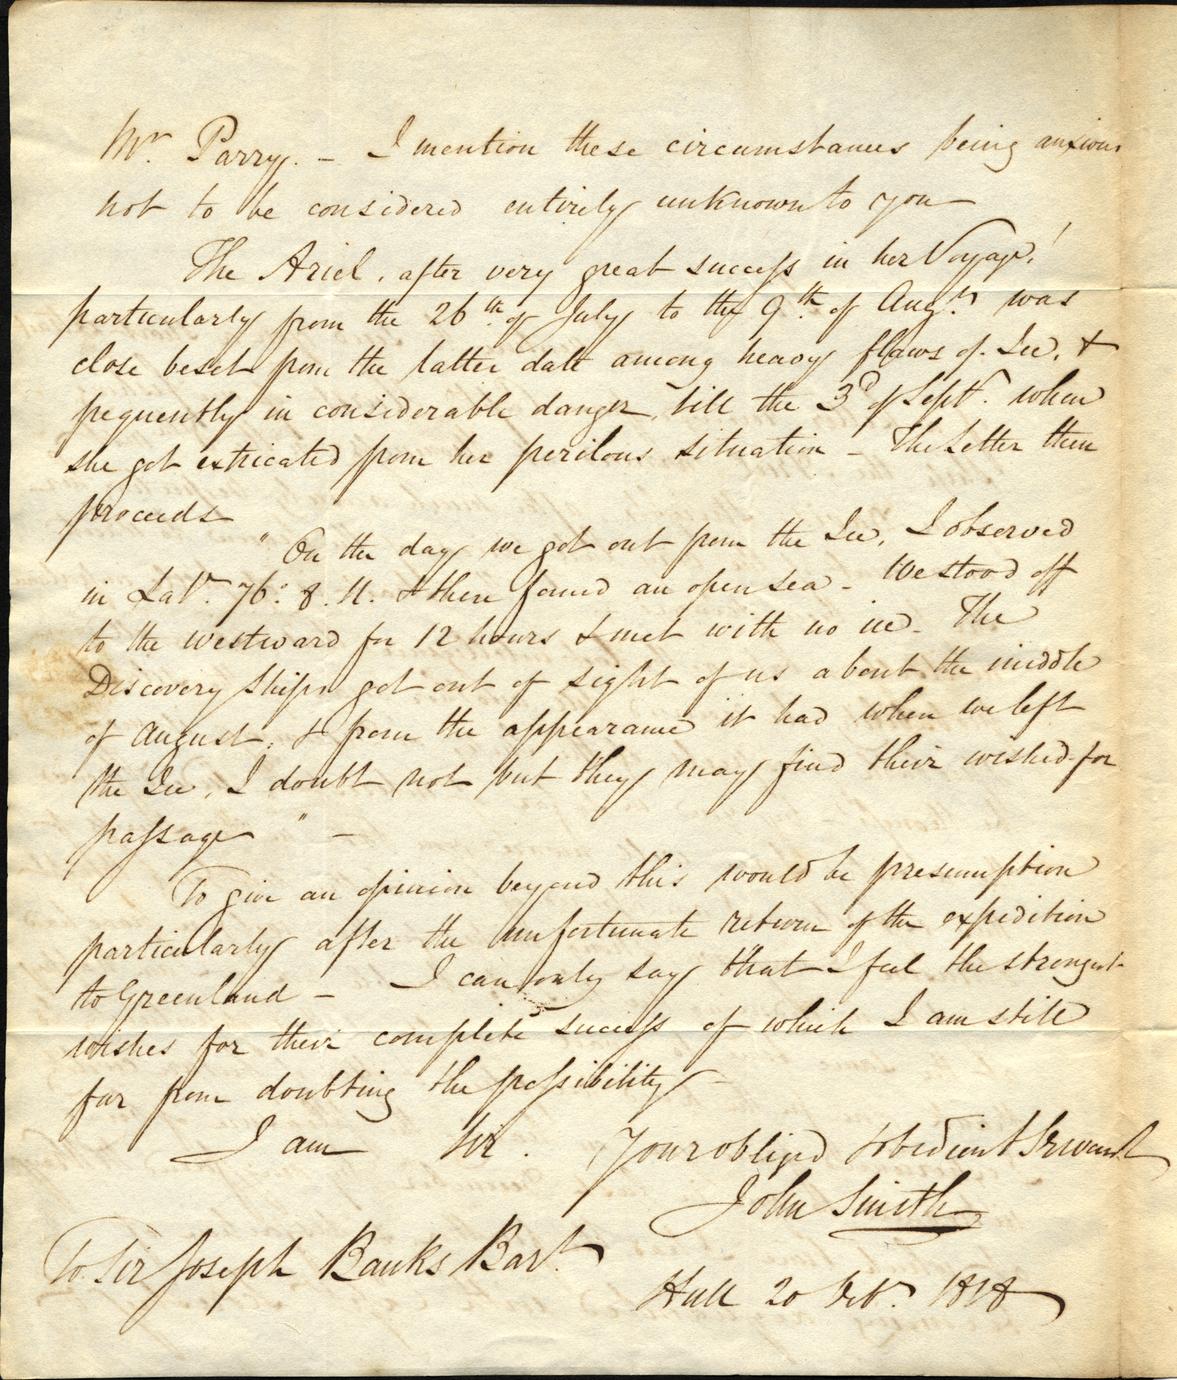 Mr. Parry. - I mention these circumstances being anxious
not to be considered entirely unknown to you
The Ariel, after very great success in her Voyage,
particularly from the 26th of July to the 9th of Augt. was
close beset from the latter date among heavy flaws of Ice, &
frequently in considerable danger, till the 3d of Septr. when
she got extricated from her perilous situation - The Letter then
proceeds
" On the day we got out from the Ice, I observed
in Lat. 76°. 8. N. & then found an open sea - We stood off
to the westward for 12 hours & met with no ice. The
Discovery Ships got out of sight of us about the middle
of August, & from the appearance it had when we left
the Ice, I doubt not but they may find their wished-for
passage " -
To give an opinion beyond this would be presumption
particularly after the unfortunate return of the expedition
to Greenland - I can only say that I feel the strongest
wishes for their complete success of which I am still
far from doubting the possibility -
I am Sir. Your obliged & obedient Servant
John Smith
To Sir Joseph Banks Bart.
Hull 20 Octr. 1818